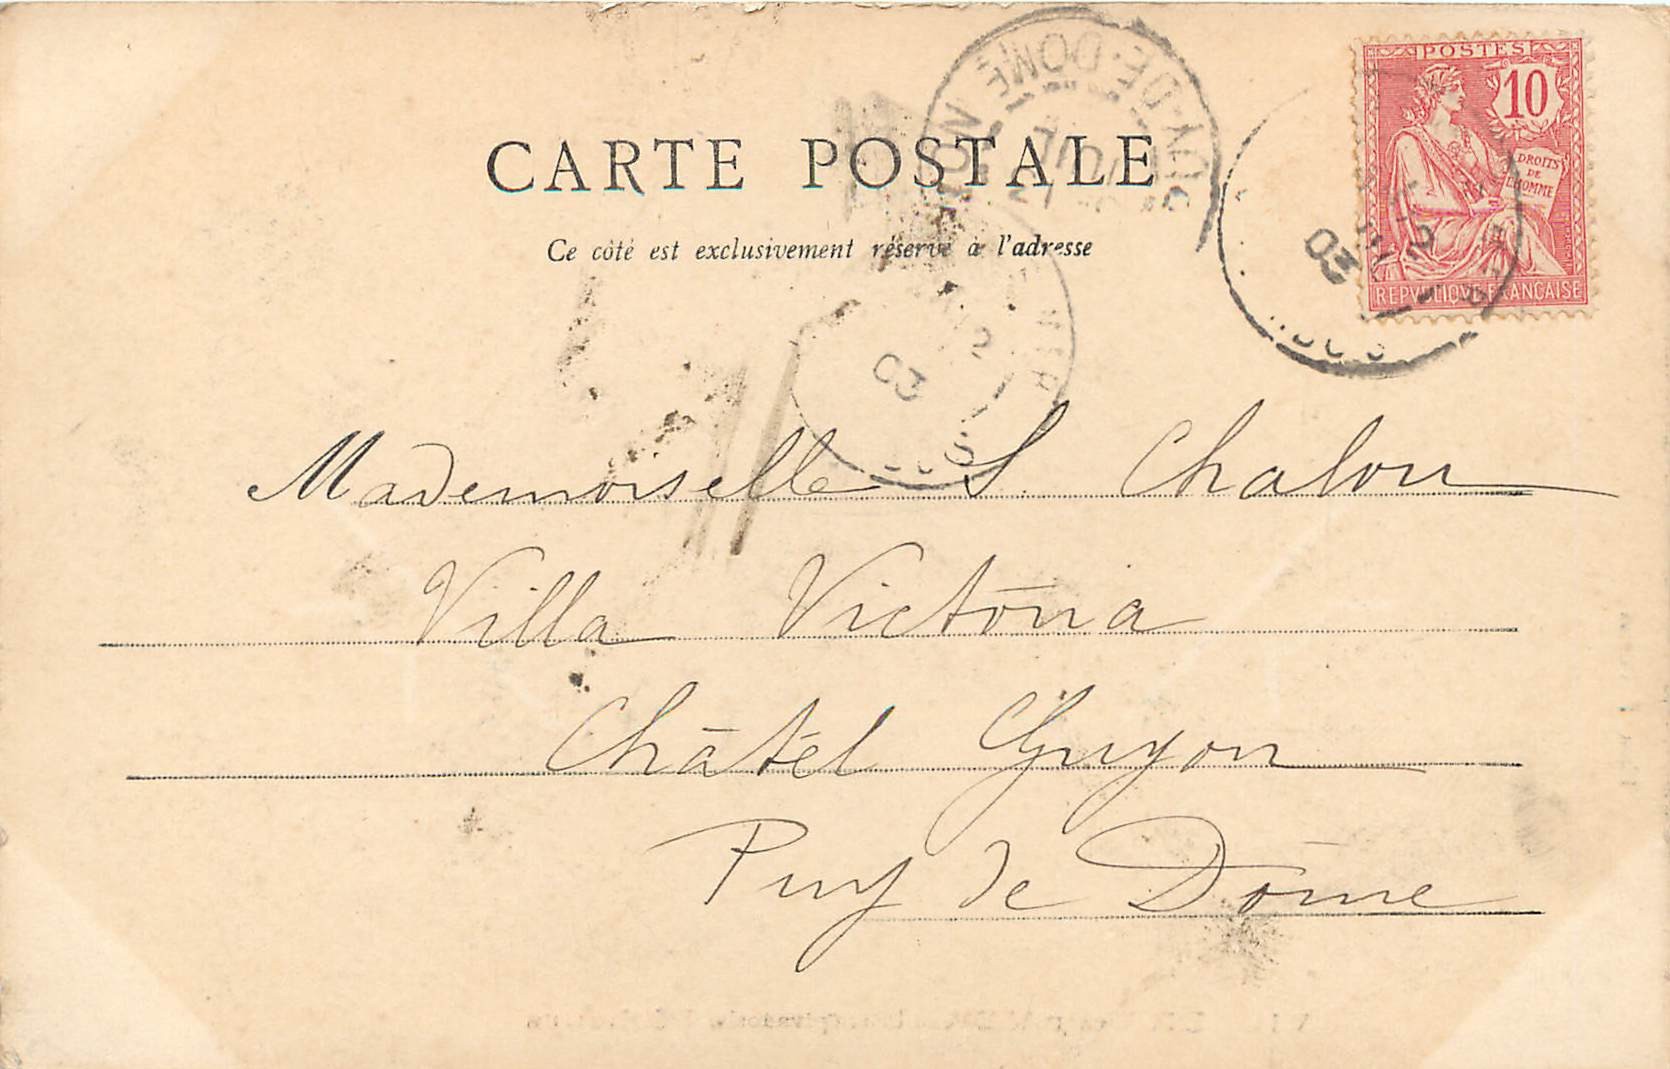 CARTE POSTALE
Ce côté est exclusivement réservé à l'adresse
POSTES
10
DROITS
DE
L'HOMME
REPVBLIQVE FRANÇAISE
PUY-DE-DOME
03
03
Mademoiselle S. Chalon
Villa Victoria
Châtel Guyon
Puy de Dôme